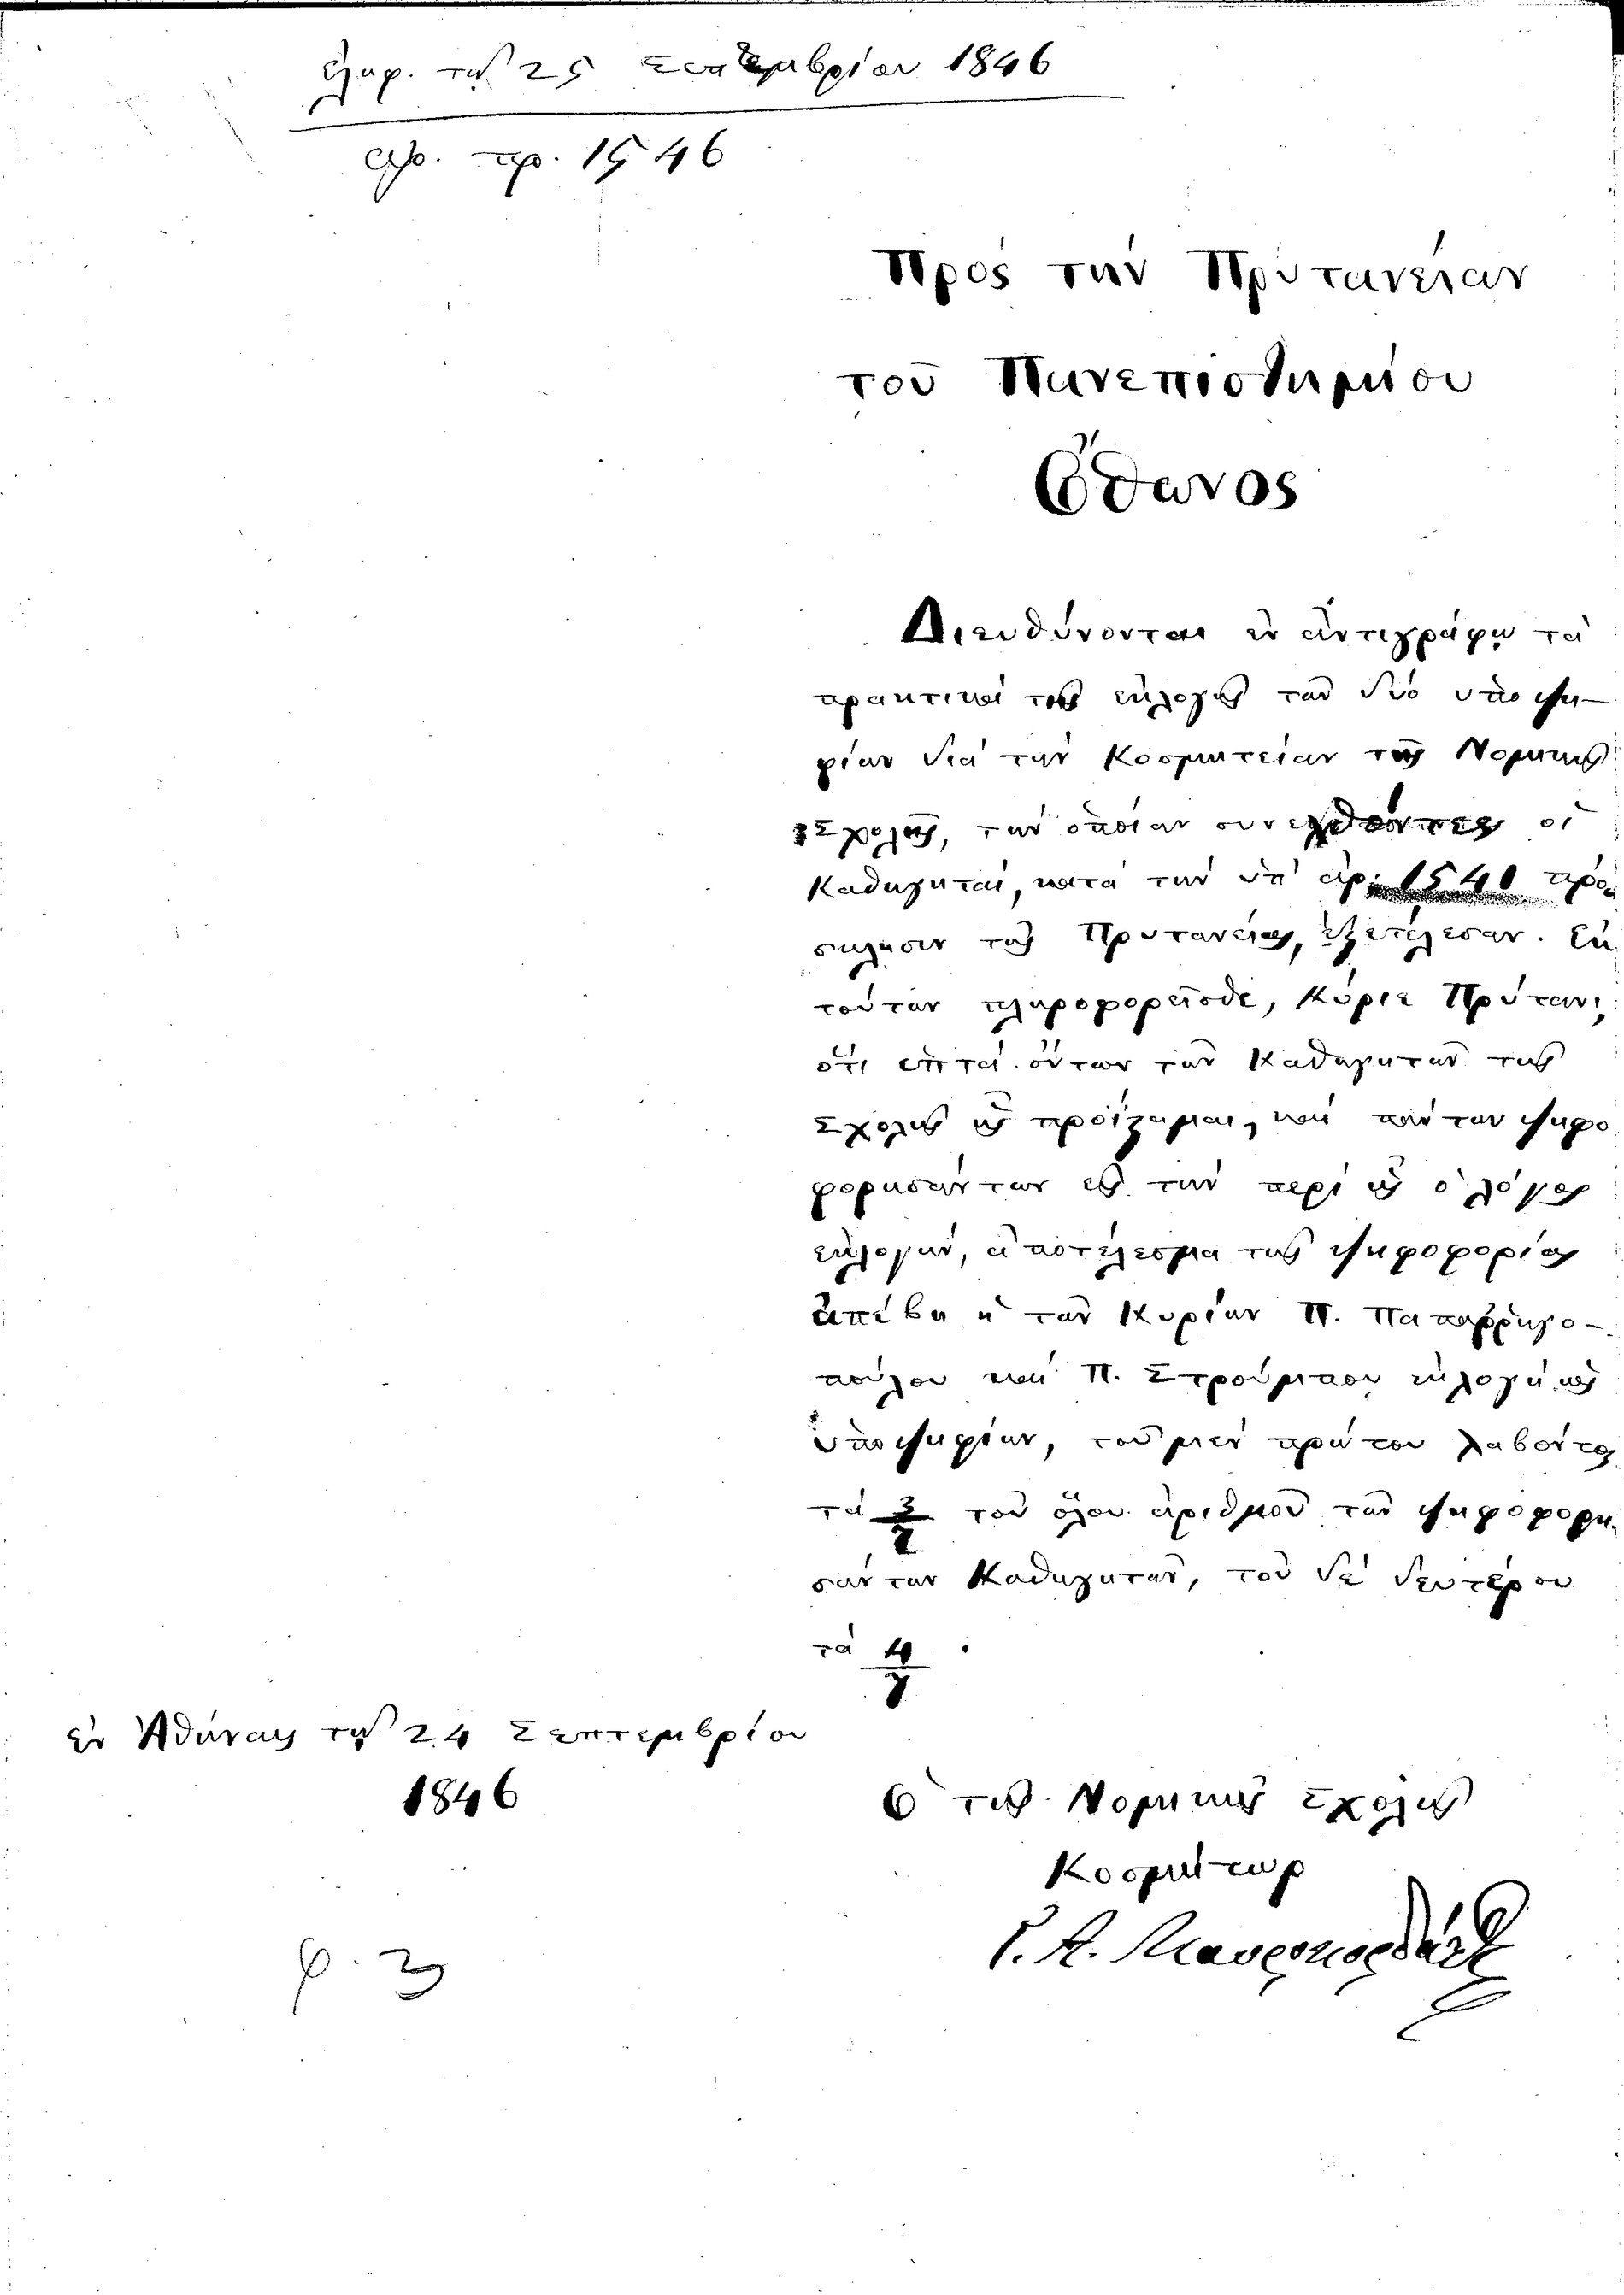 ἐλήφ. τῇ 25 Σεπτεμβρίου 1846
ἀρ. πρ. 1546
Πρὸς τὴν Πρυτανείαν
τοῦ Πανεπιστημίου
Ὄθωνος
Διευθύνονται ἐν ἀντιγράφῳ τὰ
πρακτικὰ τῆς ἐκλογῆς τῶν δύο ὑποψη-
φίων διὰ τὴν Κοσμητείαν τῆς Νομικῆς
Σχολῆς, τὴν ὁποίαν συνελθόντες οἱ
Καθηγηταὶ, κατὰ τὴν ὑπ' ἀρ. 1540 πρόσ
κλησιν τῆς Πρυτανείας, ἐξετέλεσαν. Ἐκ
τούτων πληροφορεῖσθε, Κύριε Πρύτανι,
ὅτι ἑπτὰ ὄντων τῶν Καθηγητῶν τῆς
Σχολῆς ἧς προΐσταμαι, καὶ πάντων ψηφο
φορησάντων εἰς τὴν περὶ ἧς ὁ λόγος
ἐκλογὴν, ἀποτέλεσμα τῆς ψηφοφορίας
ἀπέβη ἡ τῶν Κυρίων Π. Παπαρρηγο-
πούλου καὶ Π. Στρούμπου ἐκλογὴ ὡς
ὑποψηφίων, τοῦ μὲν πρώτου λαβόντος
τὰ 3/7 τοῦ ὅλου ἀριθμοῦ τῶν ψηφοφορη
σάντων Καθηγητῶν, τοῦ δὲ δευτέρου
τὰ 4/7.
ἐν Ἀθήναις τῇ 24 Σεπτεμβρίου
1846
Ὁ τῆς Νομικῆς Σχολῆς
Κοσμήτωρ
Γ. Α. Μαυροκορδάτος
φ. 3